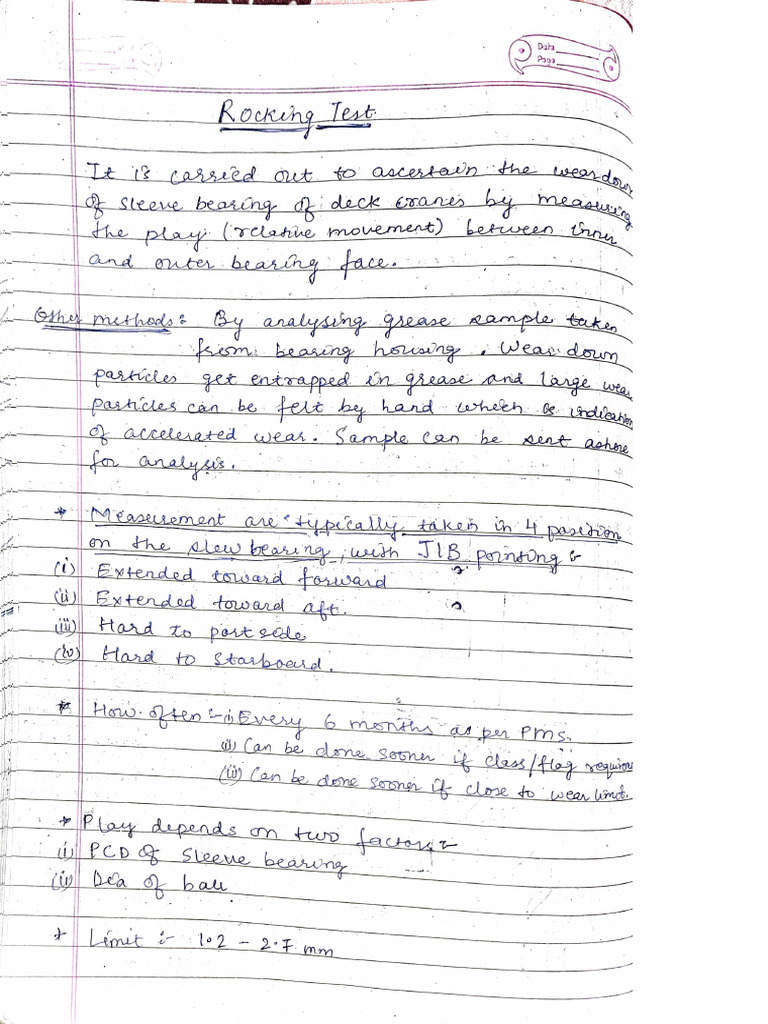 Data
Page
Rocking Test
It is carried out to ascertain the weardown
of sleeve bearing of deck cranes by measuring
the play (relative movement) between inner
and outer bearing face.
Other methods:- By analysing grease sample taken
from bearing housing. Wear down
particles get entrapped in grease and large wear
particles can be felt by hand which is indication
of accelerated wear. Sample can be sent ashore
for analysis.
* Measurement are typically taken in 4 position
on the slew bearing, with JIB pointing :-
(i) Extended toward forward
(ii) Extended toward aft.
(iii) Hard to port side
(iv) Hard to starboard.
* How often :- (i) Every 6 months as per PMS.
(ii) Can be done sooner if class/flag requires
(iii) Can be done sooner if close to wear limit.
* Play depends on two factors :-
(i) PCD of sleeve bearing
(ii) Dia of ball
* Limit :- 1.2 - 2.7 mm